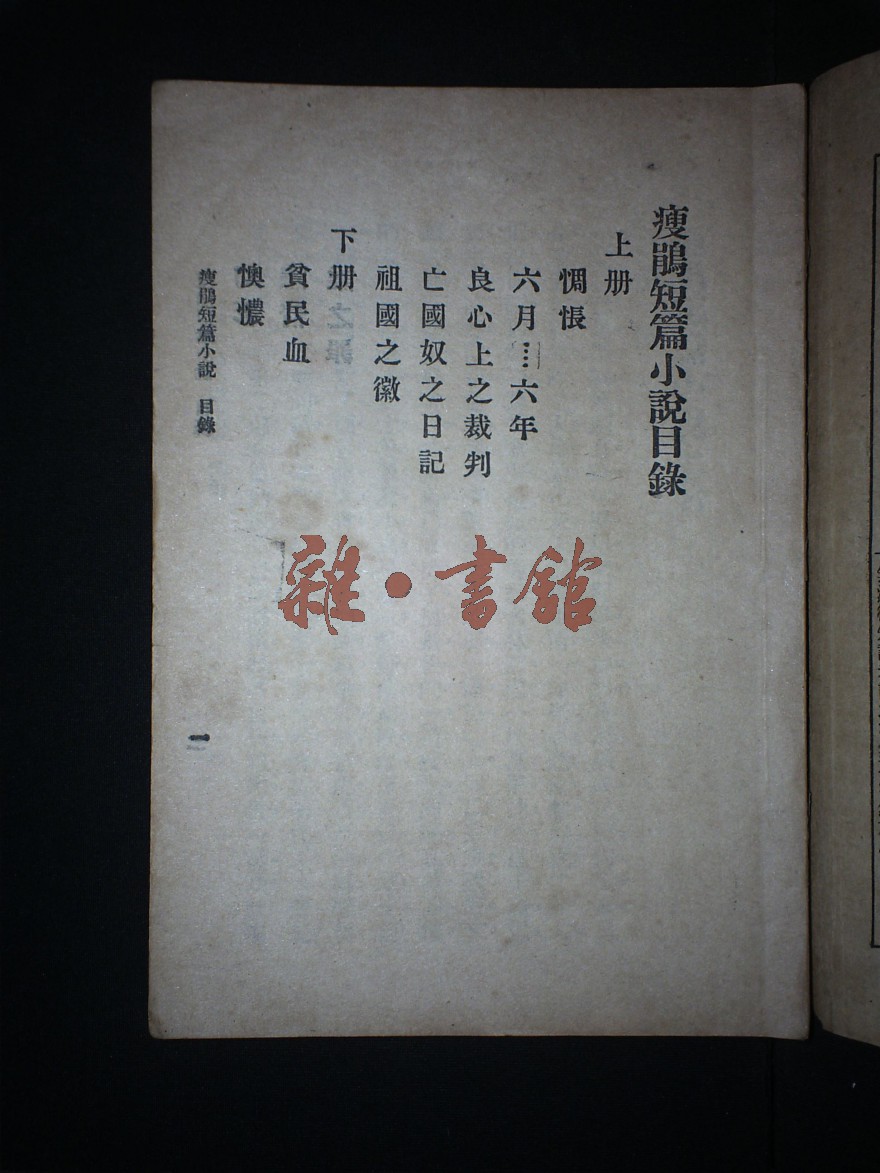 瘦鵑短篇小說目錄
上册
惆悵
六月⋯⋯六年
良心上之裁判
亡國奴之日記
祖國之徽
下册
貧民血
懊憹
瘦鵑短篇小說 目錄
一
雜·書館